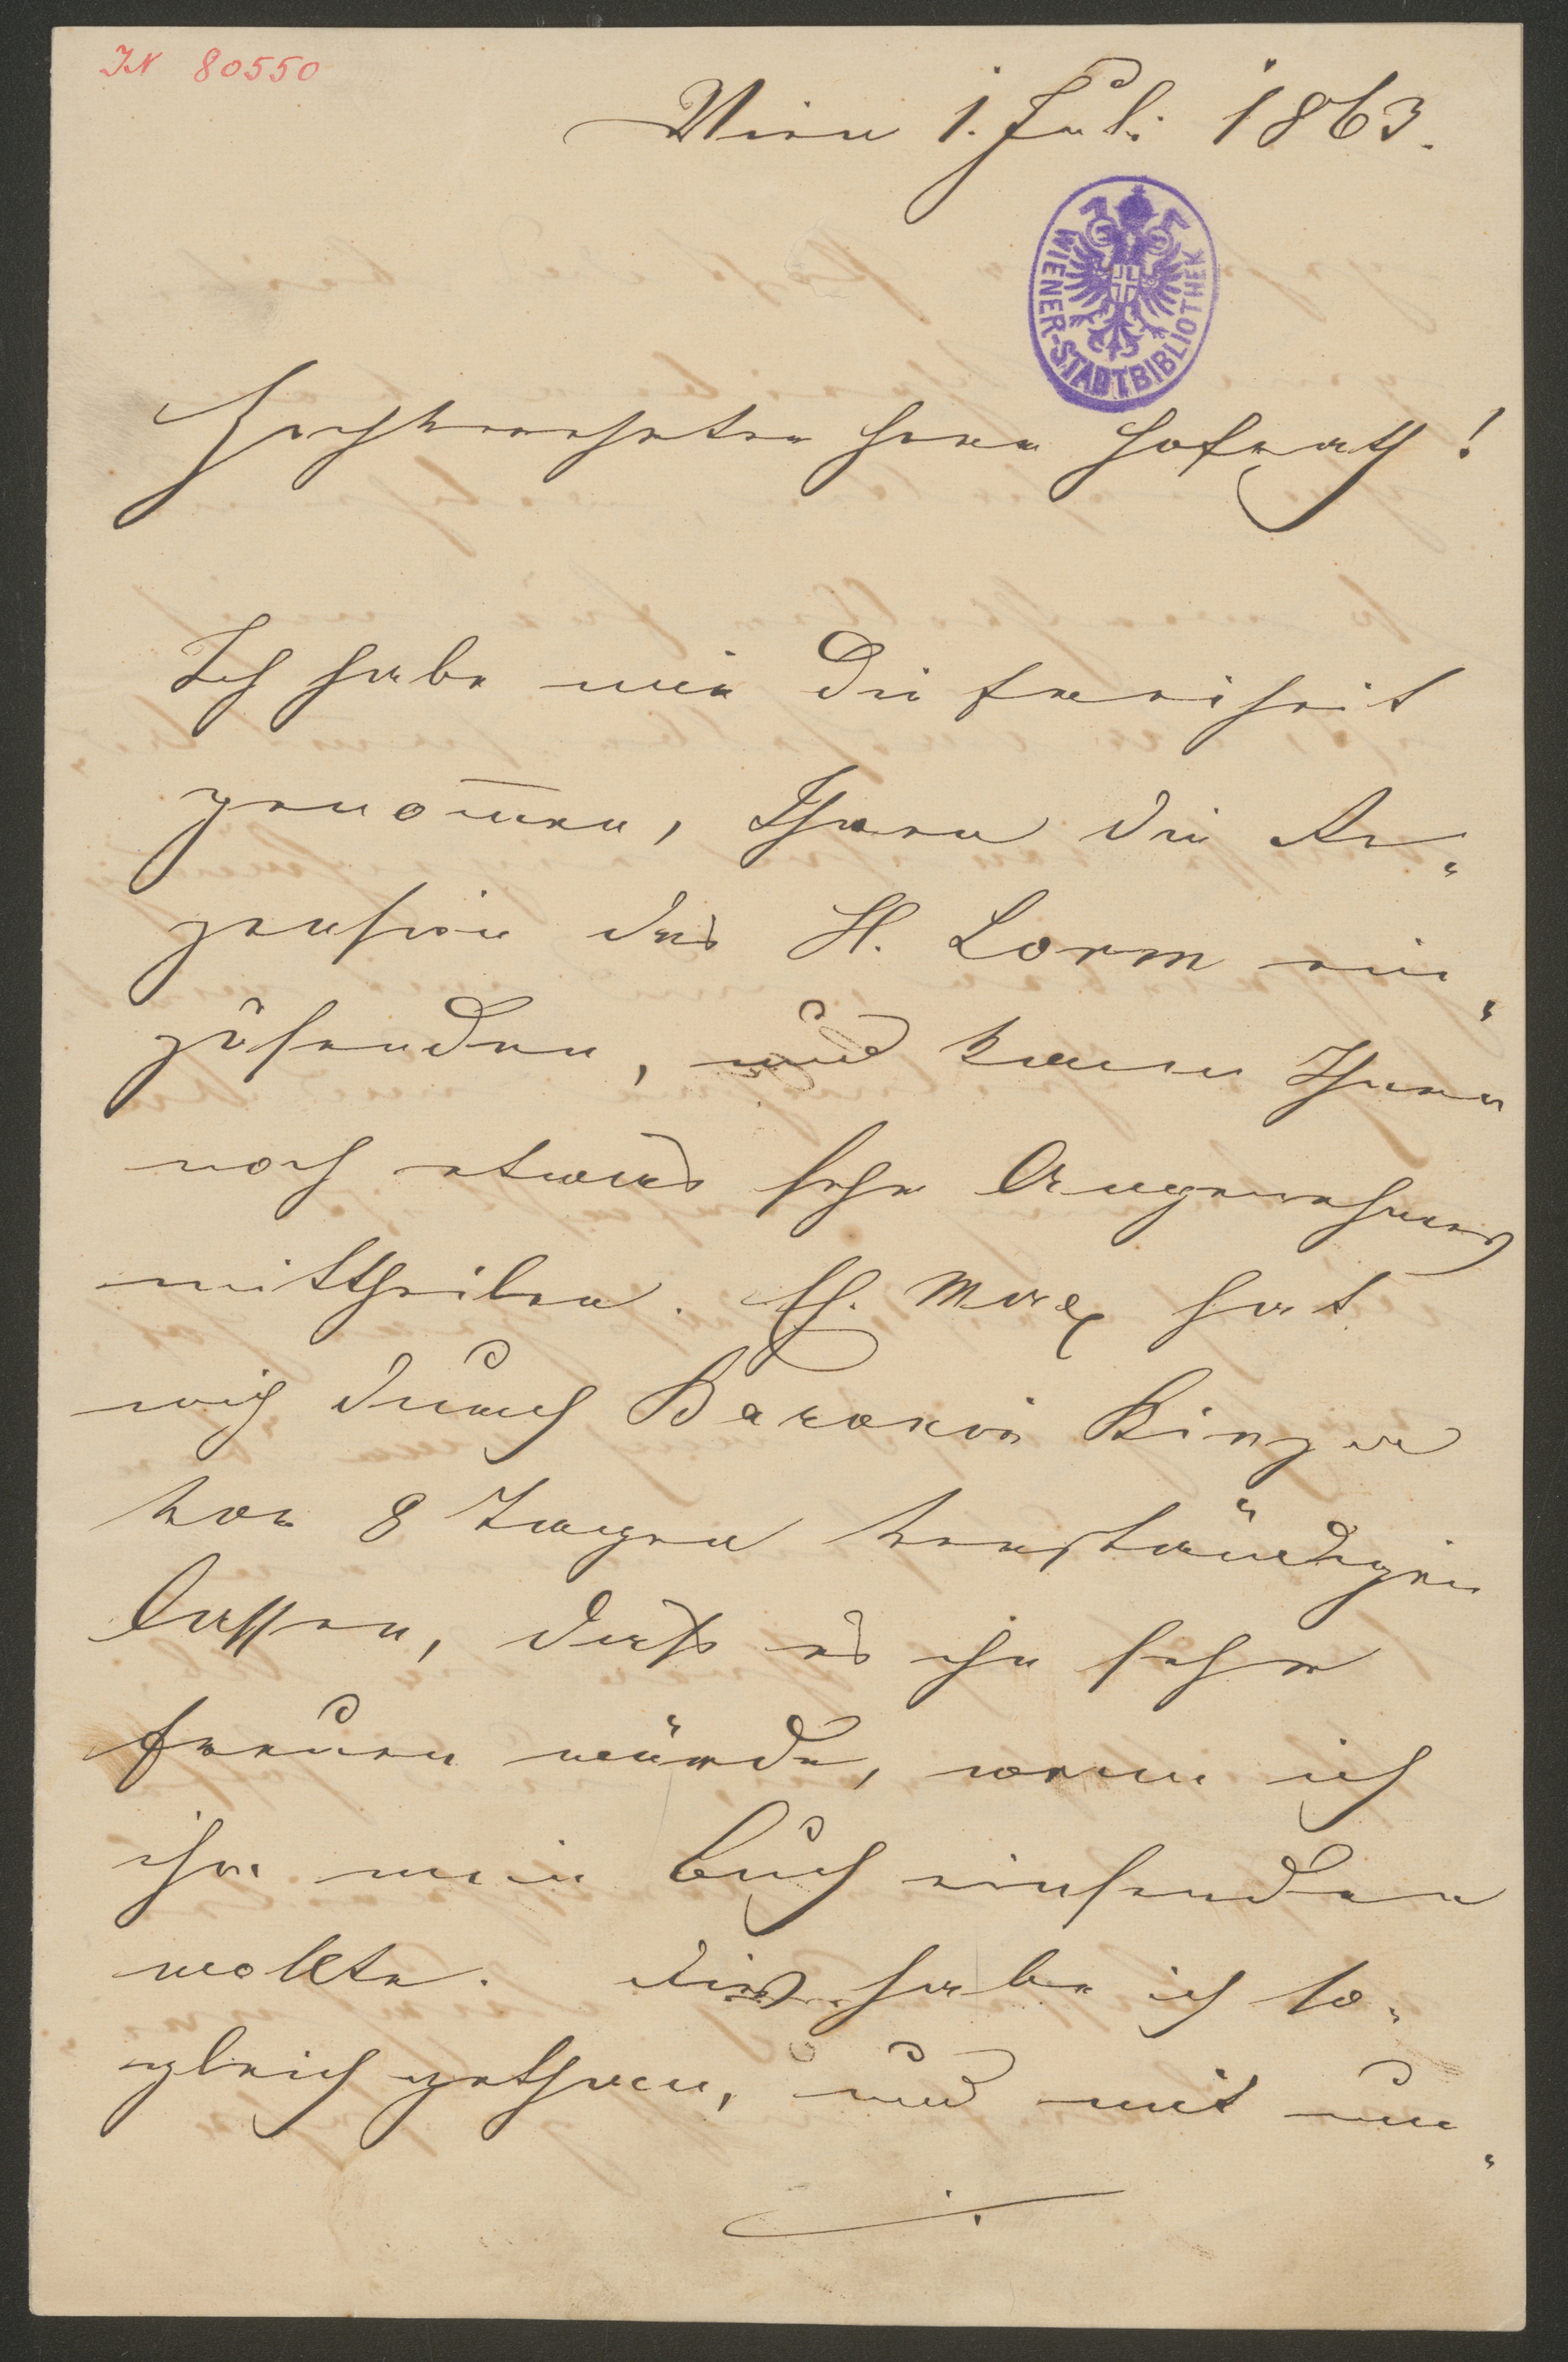 IN 80550
Wien 1. Juli 1863.
WIENER-STADTBIBLIOTHEK
Hochverehrter Herr Hofrath!
Ich habe mir die Freiheit
genom̅en, Ihnen die Re„
zension des H. Lorm ein„
zusenden, und kann Ihnen
noch etwas sehr Angenehmes
mittheilen. EH. Max hat
mich durch Baronin Binzer
vor 8 Tagen verständigen
lassen, daß es ihn sehr
freuen würde, wenn ich
ihm mein Buch einsenden
wollte. Dies habe ich so„
gleich gethan, und mit um„